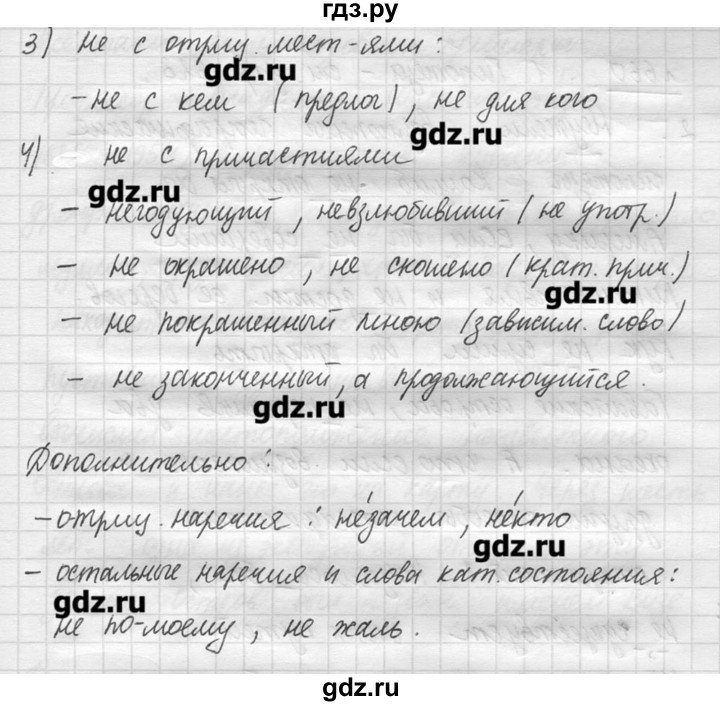 гдз.ру
3) не с отриц. мест-ями:
gdz.ru
- не с кем (предлог), не для кого
gdz.ru
4) не с причастиями
gdz.ru
- негодующий, невзлюбивший (не употр.)
- не окрашено, не скошено (крат. прич.)
gdz.ru
- не покрашенный мною (зависим. слово)
- не законченный, а продолжающийся.
gdz.ru
Дополнительно:
- отриц. наречия: не́зачем, не́кто
gdz.ru
- остальные наречия и слова кат. состояния:
gdz.ru
не по-моему, не жаль.
gdz.ru